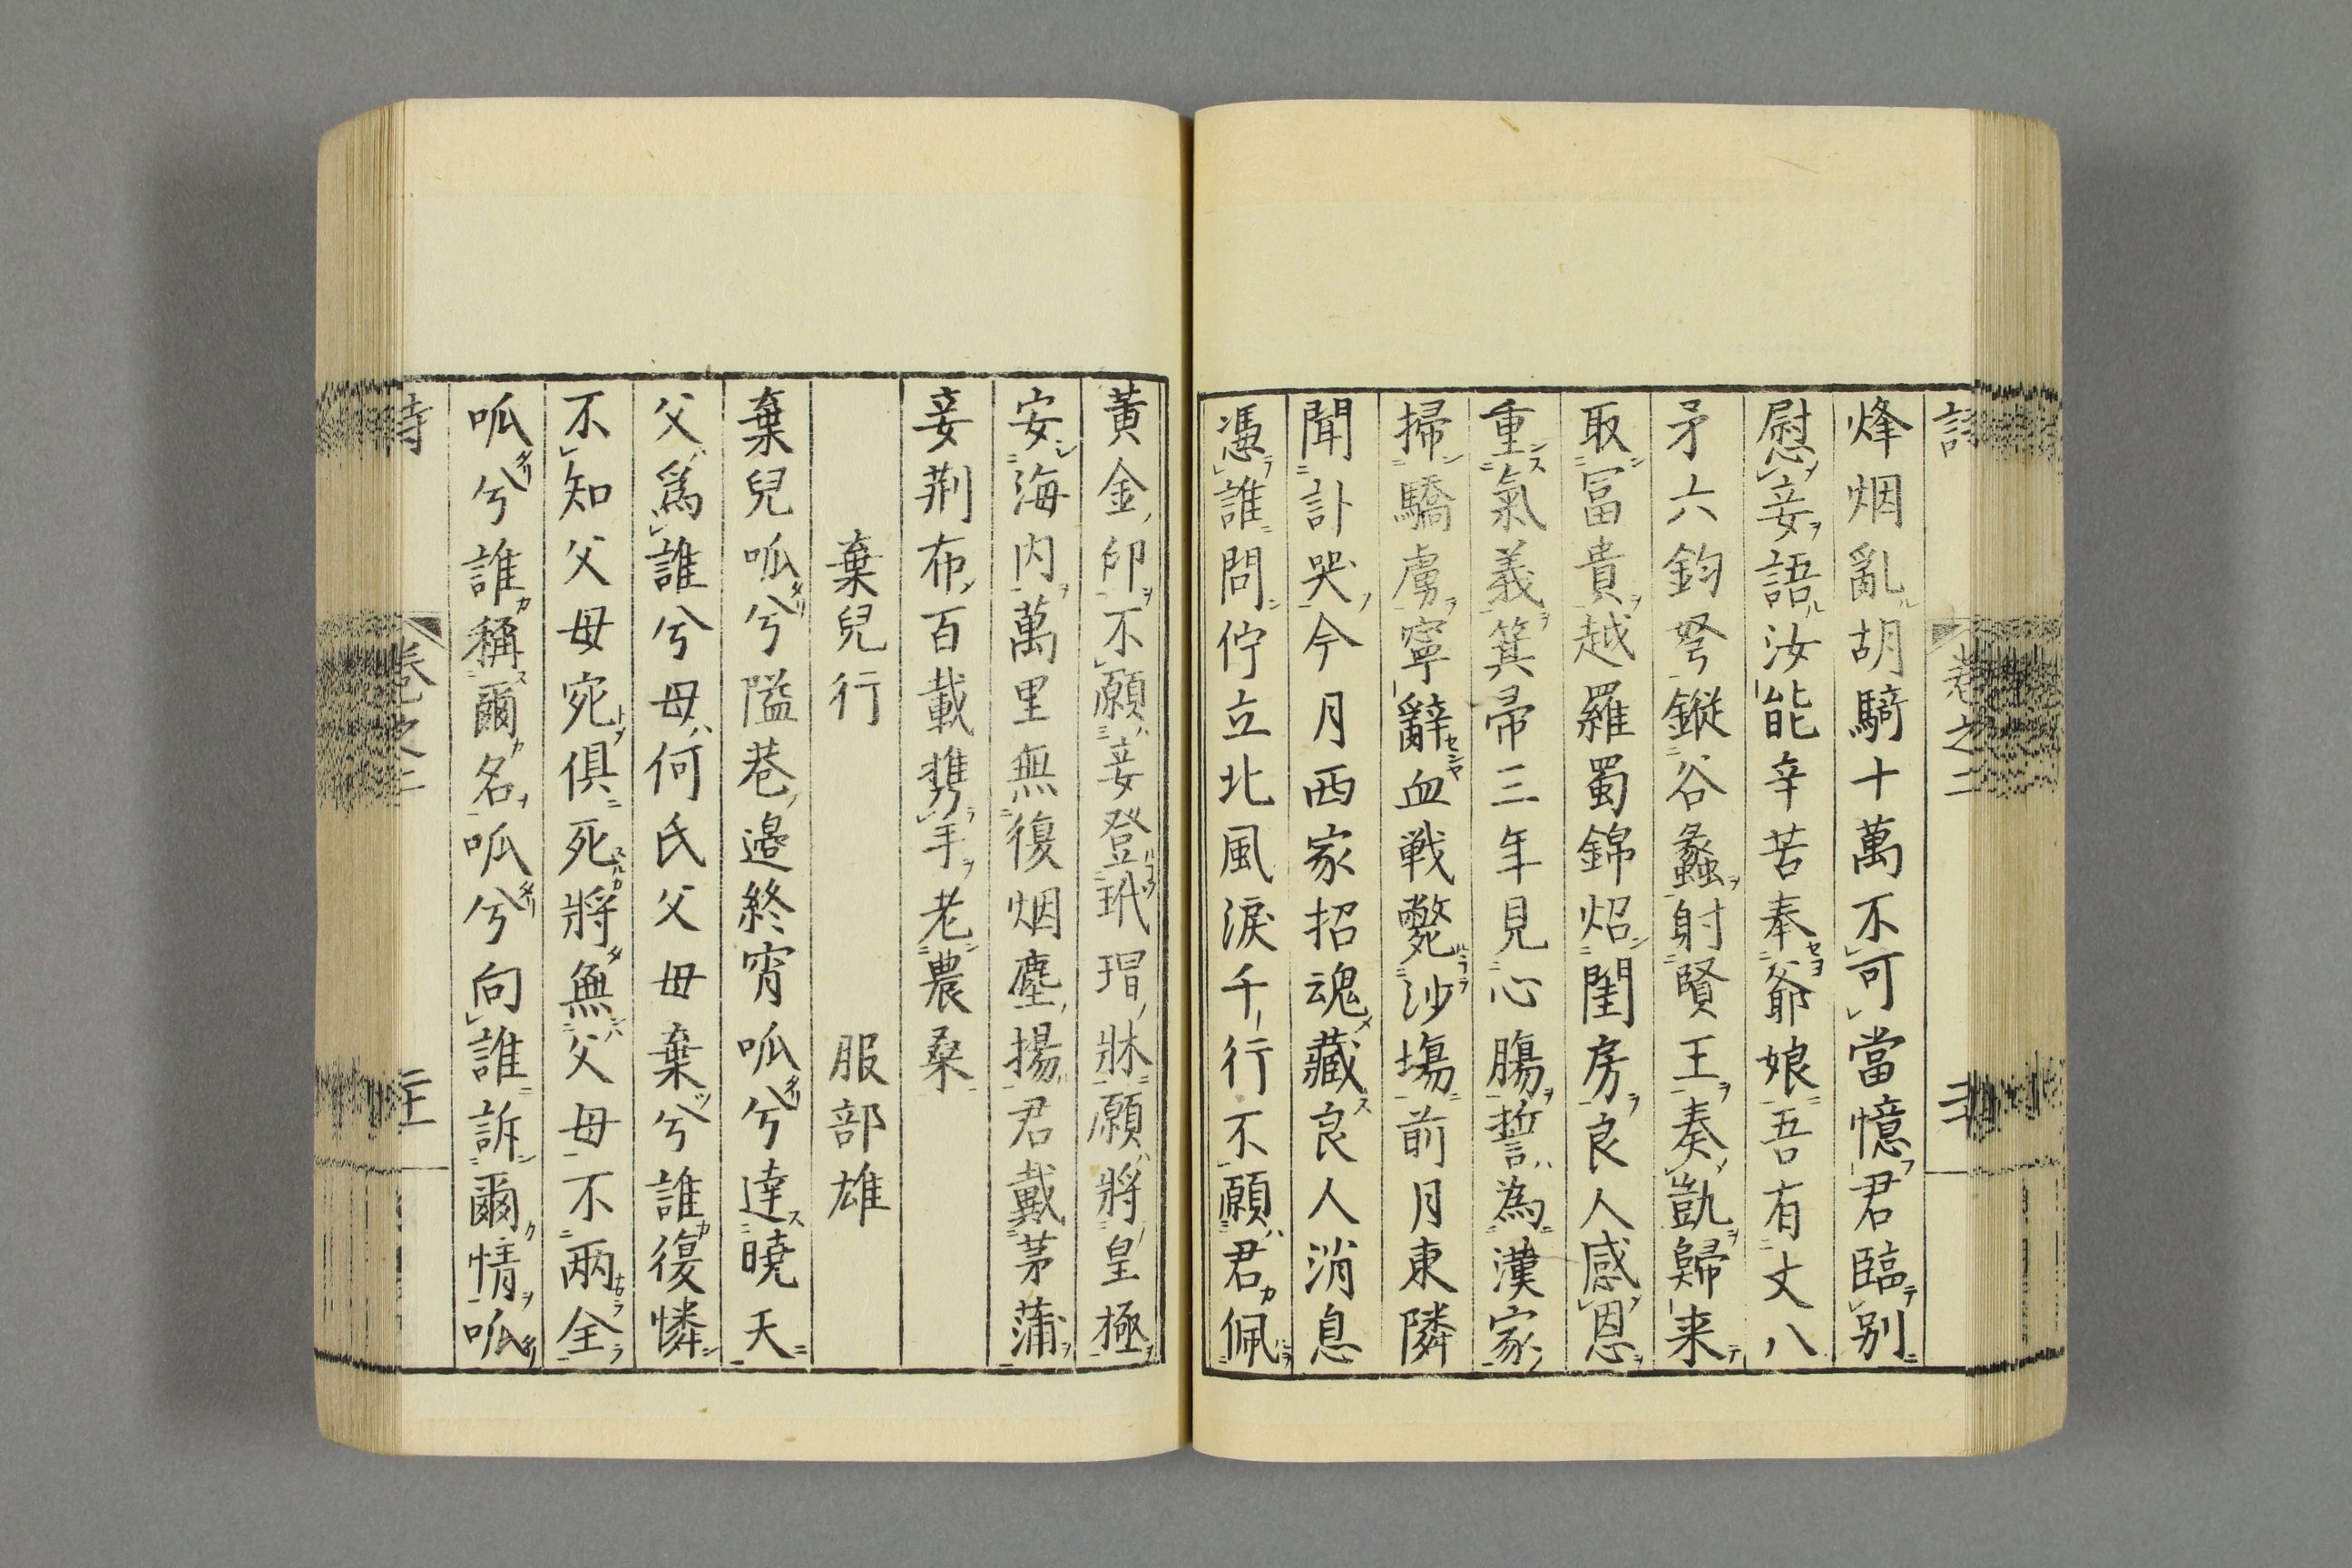 卷之二
烽烟亂胡騎十萬不可當憶君臨别
慰妾語汝能辛苦奉爺娘吾有丈八
矛六鈞弩鏦谷蠡射賢王奏凱歸来
取冨貴越羅蜀錦炤閨房良人感恩
重氣義箕帚三年見心膓誓為漢家
掃驕虜寧辭血戦斃沙塲前月東隣
聞訃哭今月西家招魂藏良人消息
憑誰問佇立北風淚千行不願君佩
黃金印不願妾登玳瑁牀願將皇極
安海内萬里無復烟塵揚君戴茅蒲
妾荆布百載携手老農桑
棄兒行　服部雄
棄兒呱兮隘巷邉終宵呱兮達曉天
父爲誰兮母何氏父母棄兮誰復憐
不知父母宛俱死將無父母不兩全
呱兮誰稱爾名呱兮向誰訴爾情呱
卷之二